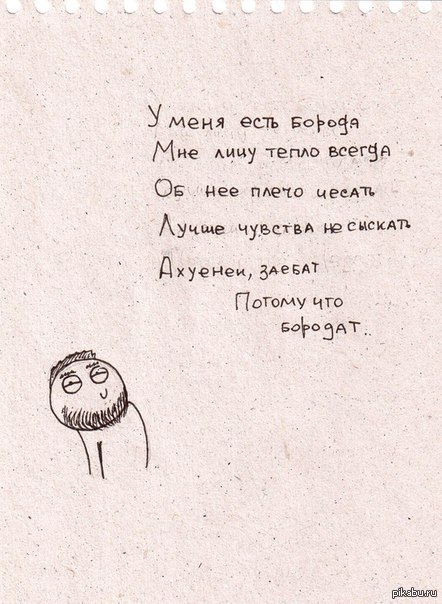 У меня есть борода
Мне лицу тепло всегда
Об нее плечо чесать
Лучше чувства не сыскать
Ахуенен, заебат
Потому что
бородат..
pikabu.ru